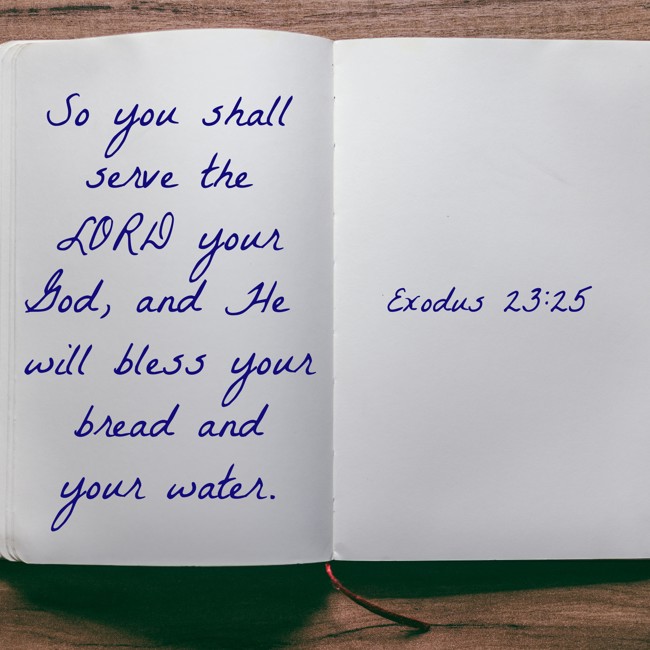 So you shall
serve the
LORD your
God, and He
will bless your
bread and
your water.
Exodus 23:25